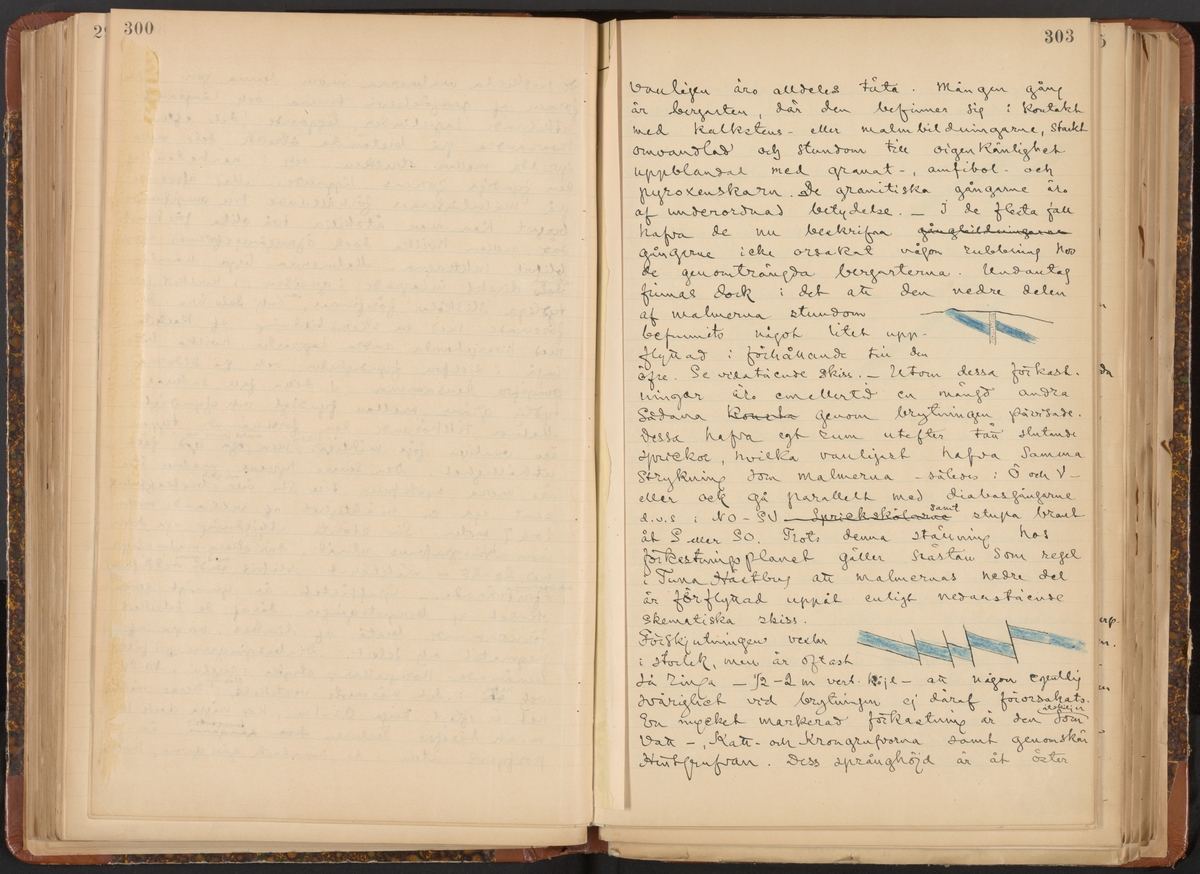 300
303
vanligen äro alldeles täta. Mången gång
är bergarten, där den befinner sig i kontakt
med kalkstens- eller malmbildningarne, starkt
omvandlad och stundom till oigenkänlighet
uppblandat med granat-, amfibol- och
pyroxenskarn. De granitiska gångarne äro
af underordnad betydelse. — I de flesta fall
hafva de nu beskrifna gångbildningarne
gångerne icke orsakat någon rubbning hos
de genomträngda bergarterna. Undantag
finnas dock i det att den nedre delen
af malmerna stundom
befunnits något litet upp-
flyttad i förhållande till den
öfre. Se vidstående skiss. — Utom dessa förkast-
ningar äro emellertid en mängd andra
sådana genom brytningen påvisade.
Dessa hafva egt rum utefter slutande
sprickor, hvilka vanligast hafva samma
strykning som malmerna - således i Ö och V -
eller ock gå parallelt med diabasgångarne
d.v.s i NO-SV samt stupa brant
åt S eller SO. Trots denna ställning hos
förkastningsplanet gäller såsom regel
i Tuna Hästberg att malmernas nedre del
är förflyttad uppåt enligt nedanstående
skematiska skiss.
Förskjutningen vexlar
i storlek, men är oftast
så ringa — ½-2 m vert. höjd - att någon egentlig
svårighet vid brytningen ej däraf förorsakats.
En mycket markerad förkastning är den som
Vatt-, Katt- och Krongrufvorna samt genomskär
Hästgrufvan. Dess språnghöjd är åt öster